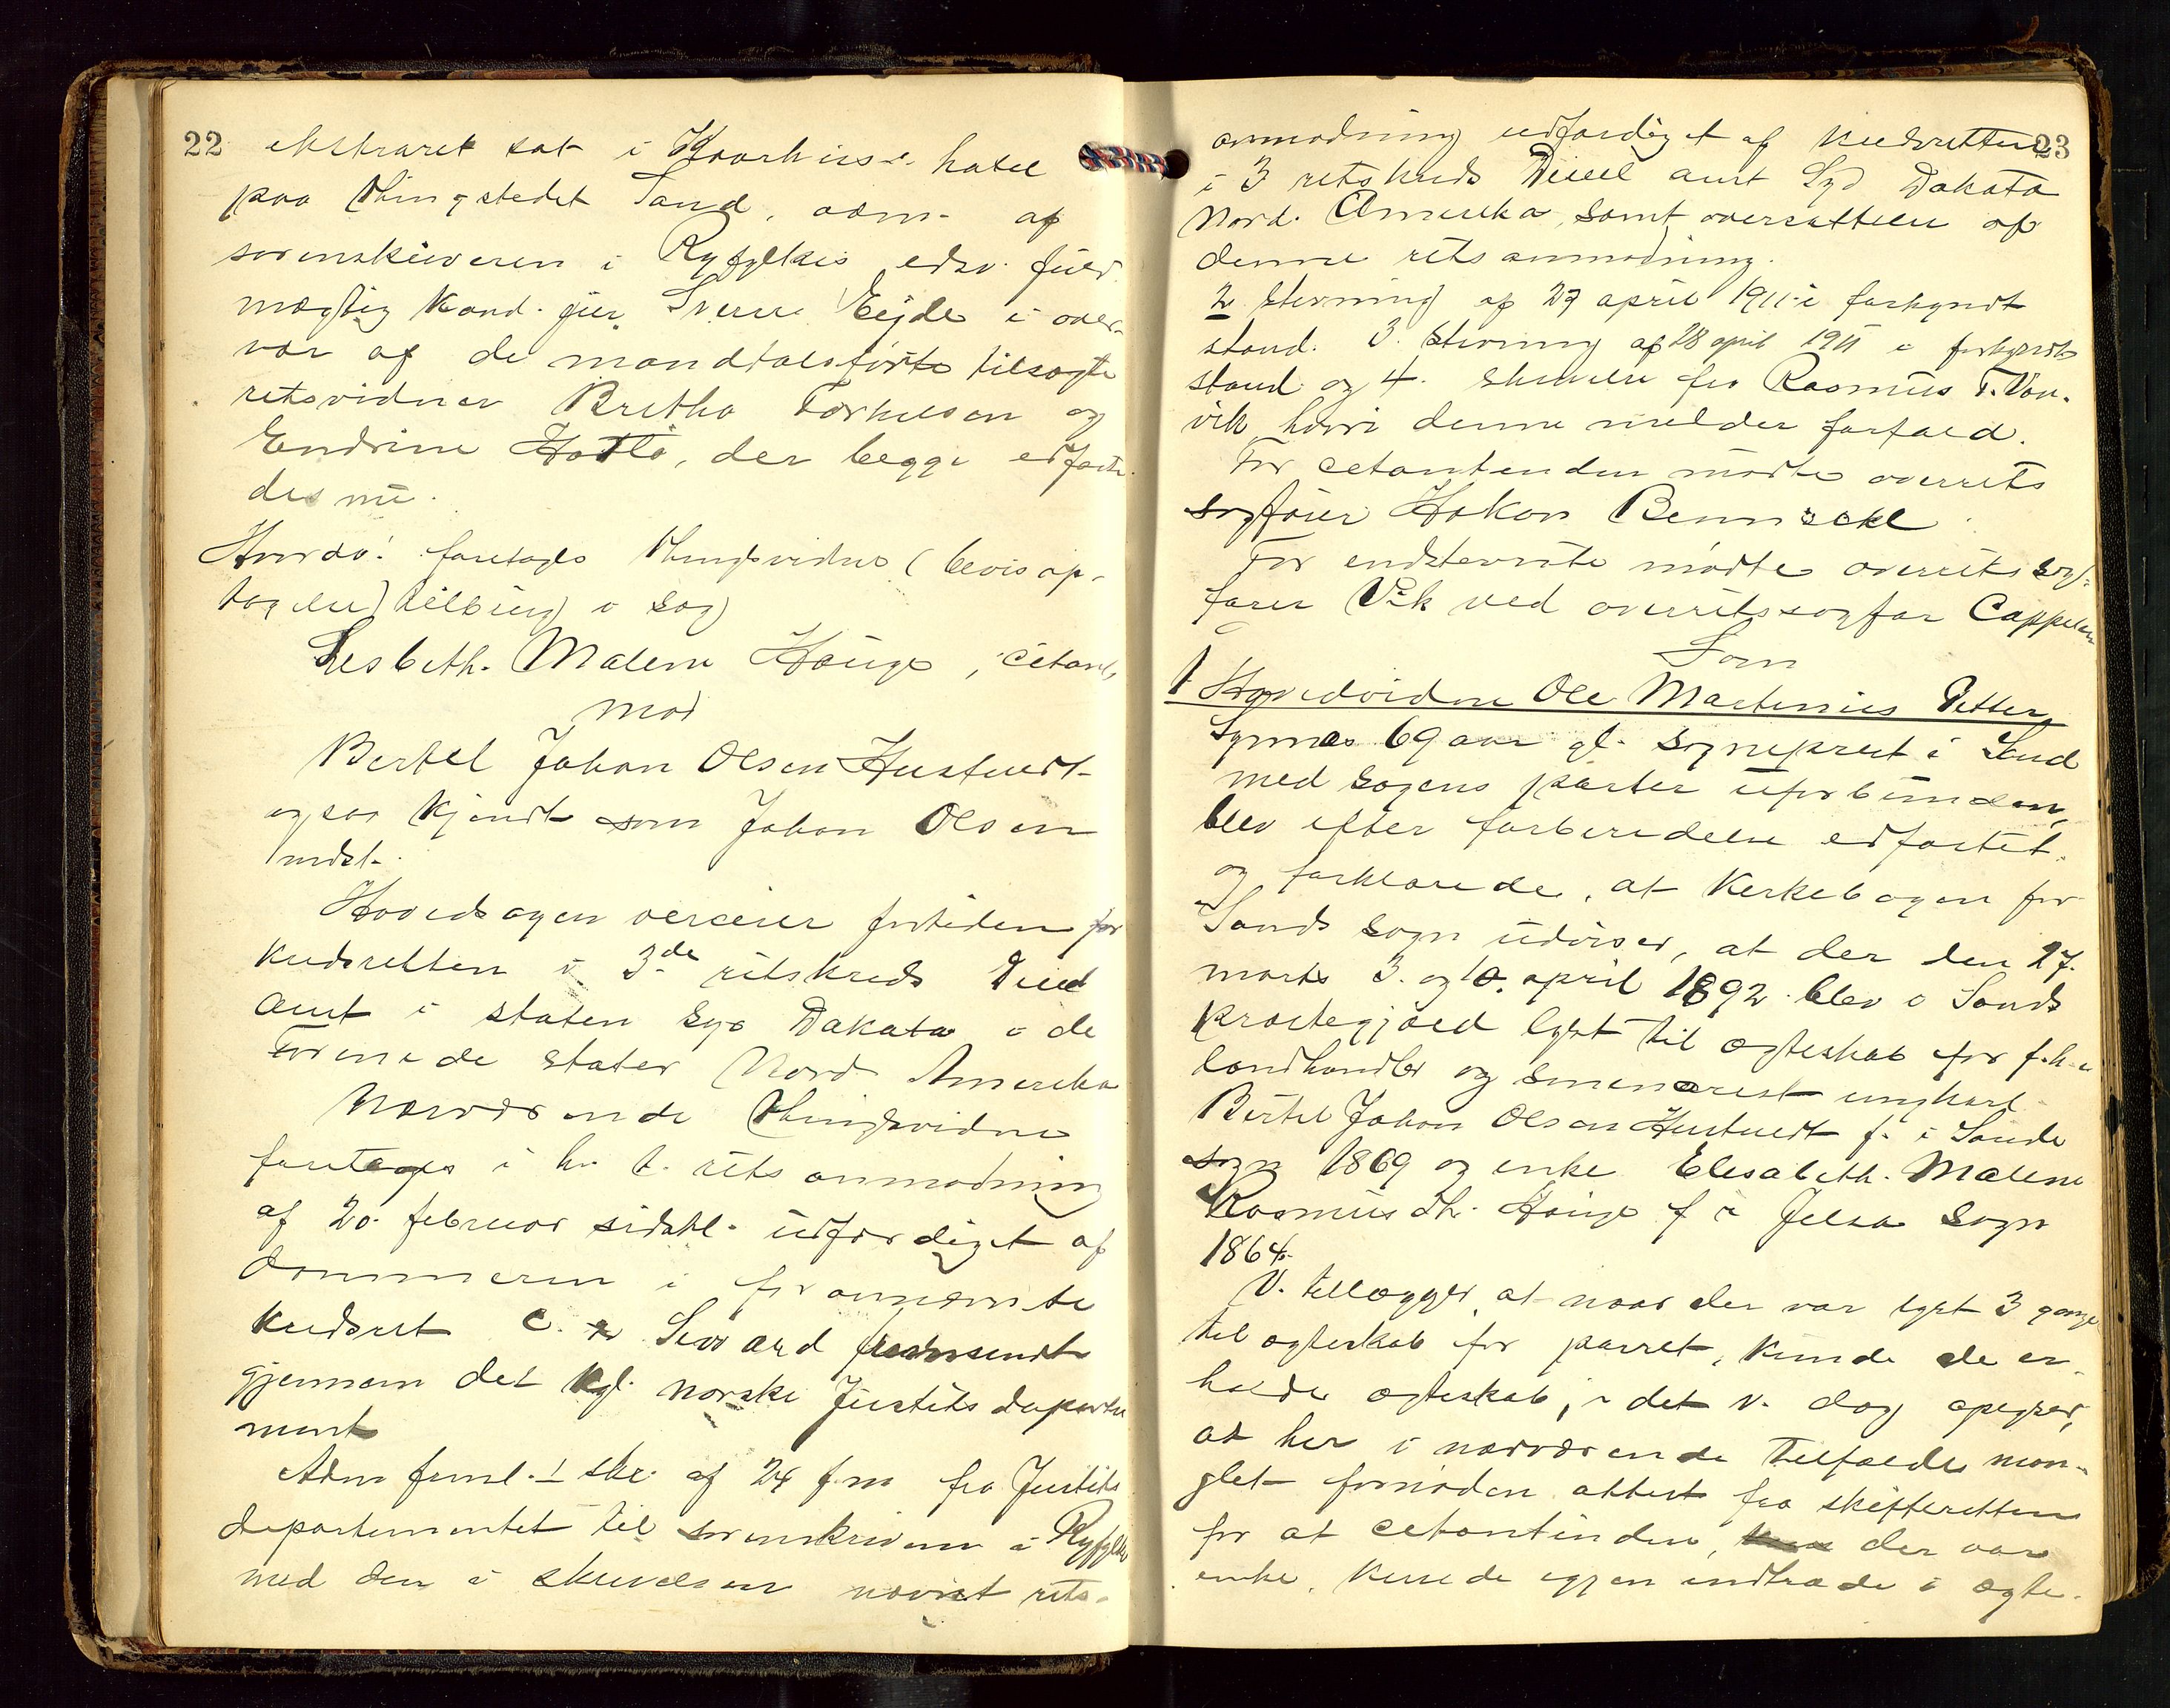 22
ekstraret sat i Kaarhus's hotel
paa thingstedet Sand, adm. af
sorenskriveren i Ryfylkes edsv. fuld-
mægtig kand. jur. Sverre Eijde i over-
vær af de mandtalsførte tilsagte
retsvidner Bretha Torkelsen og
Endrine Hatlø, der begge edfæste-
des nu.
Hvorda! foretoges thingsvidne (bevisop-
tagelse) tilbrug i sag
Lisbeth Malene Hauge, citant,
mod
Bertel Johan Olsen Hustuedt
ogsaa kjendt som Johan Olsen
indst.
Hovedsagen verserer fortiden for
kredsretten i 3de retskreds Deuel
amt i staten Syd Dakata i de
Forenede stater Nord Amerika
Nærværende thingsvidne
foretages i h. t. rets anmodning
af 20. februar sidstl. udfærdiget af
dommeren i forannævnte
kredsret C. Seward fremsendt
gjennem det kgl. norske Justits departe
ment
Adm freml. 1 skr. af 24 f.m fra Justits
departementet til sorenskriveren i Ryfylke
med den i skrivelsen nævnt rets-
23
anmodning udfærdiget af kredsretten
i 3 retskreds Deuel amt Syd Dakota
Nord. Amerika, samt oversættelse af
denne rets anmodning.
2 stevning af 27 april 1911 i forkyndt
stand. 3. Stevning af 28 april 1911 i forkyndt
stand og 4. skrivelse fra Rasmus T. Van-
vik hvori denne melder forfald.
For citantinden mødte overrets
sagfører Hakon Bennech
For indstevnte mødte overretssag-
fører Vik ved overretssagfør Cappelen
Som
1 Hovedvidne Ole Martinius Petter
Synnes 69 aar gl. sogneprest i Sand
med sagens parter uforbunden,
blev efter forberedelse edfæstet
og forklarede, at Kirkebogen for
Sands sogn udviser, at der den 27.
marts 3. og 10. april 1892 blev i Sands
prestegjæld lyst til ægteskab for f.h.v.
landhandler og seminarist ungkarl
Bertel Johan Olsen Hustuedt f. i Sande
sogn 1869 og enke Elisabeth Malene
Rasmusdtr. Hauge f i Jelsa sogn
1864.
V. tillægger, at naar der var lyst 3 gange
til ægteskab for parret, kunde de er-
holde ægteskab, i det v. dog opgiver,
at her i nærværende tilfælde man-
glet fornøden attest fra skifteretten
for at citantinden, der var
enke, kunde igjen indtræde i ægte-